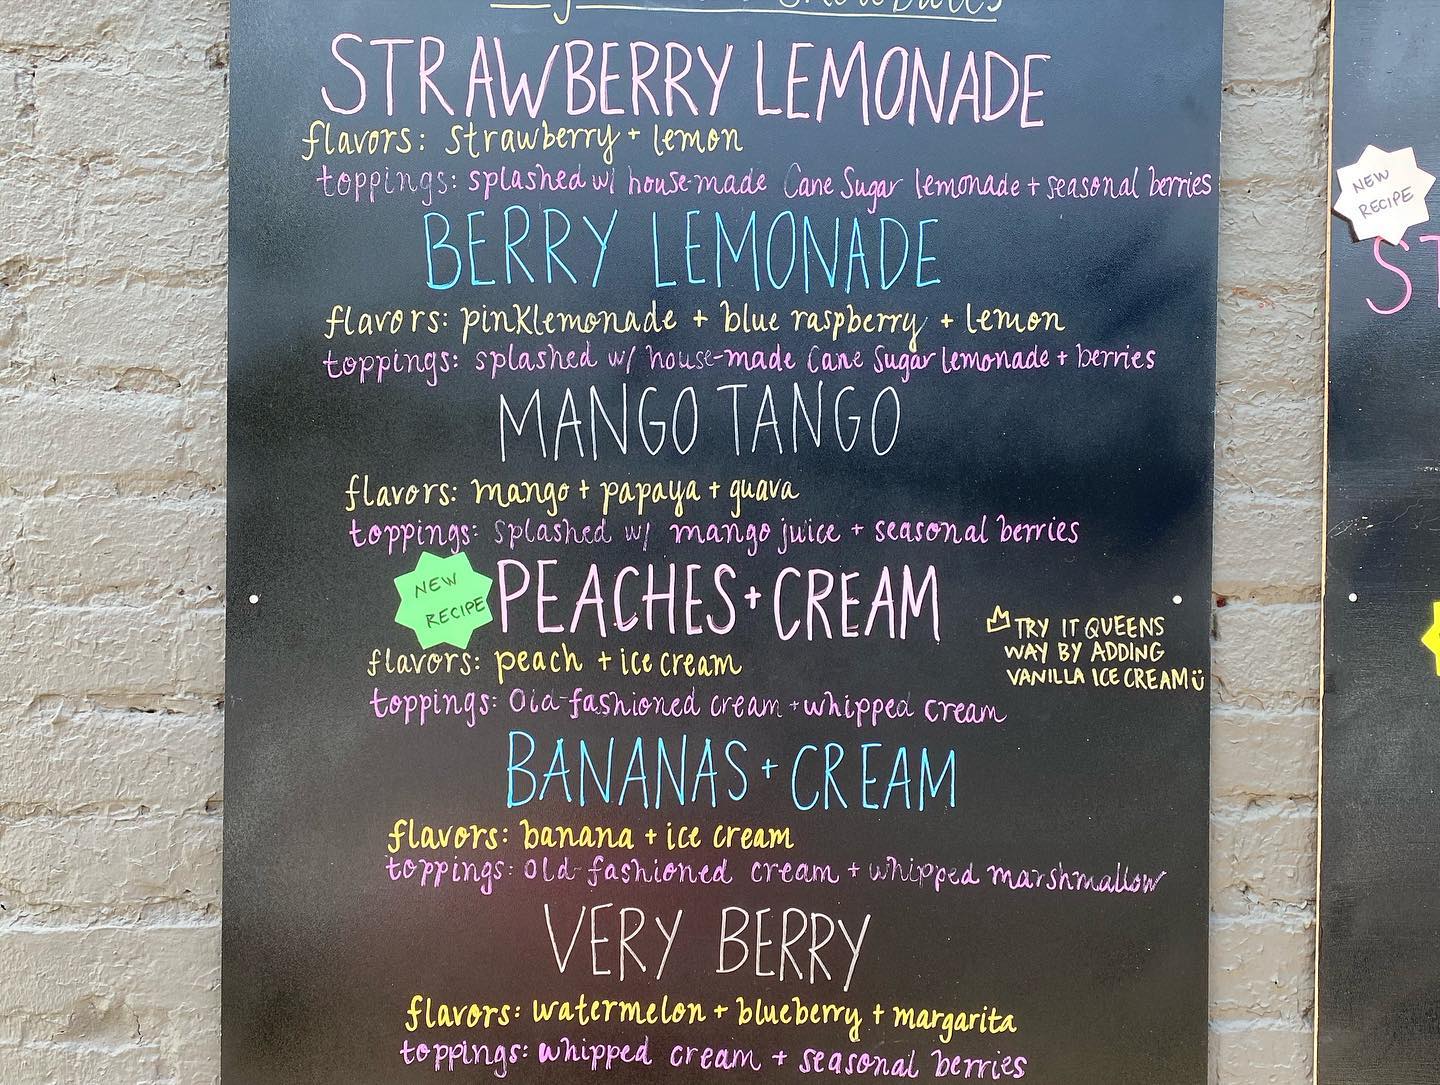 STRAWBERRY LEMONADE
flavors: strawberry + lemon
toppings: splashed w/ house-made Cane Sugar lemonade + seasonal berries
BERRY LEMONADE
flavors: pinklemonade + blue raspberry + lemon
toppings: splashed w/ house-made Cane Sugar lemonade + berries
MANGO TANGO
flavors: mango + papaya + guava
toppings: splashed w/ mango juice + seasonal berries
NEW
RECIPE
PEACHES + CREAM
flavors: peach + ice cream
toppings: Old-fashioned cream + whipped cream
TRY IT QUEENS
WAY BY ADDING
VANILLA ICE CREAM
BANANAS + CREAM
flavors: banana + ice cream
toppings: Old-fashioned cream + whipped marshmallow
VERY BERRY
flavors: watermelon + blueberry + margarita
toppings: whipped cream + seasonal berries
NEW
RECIPE